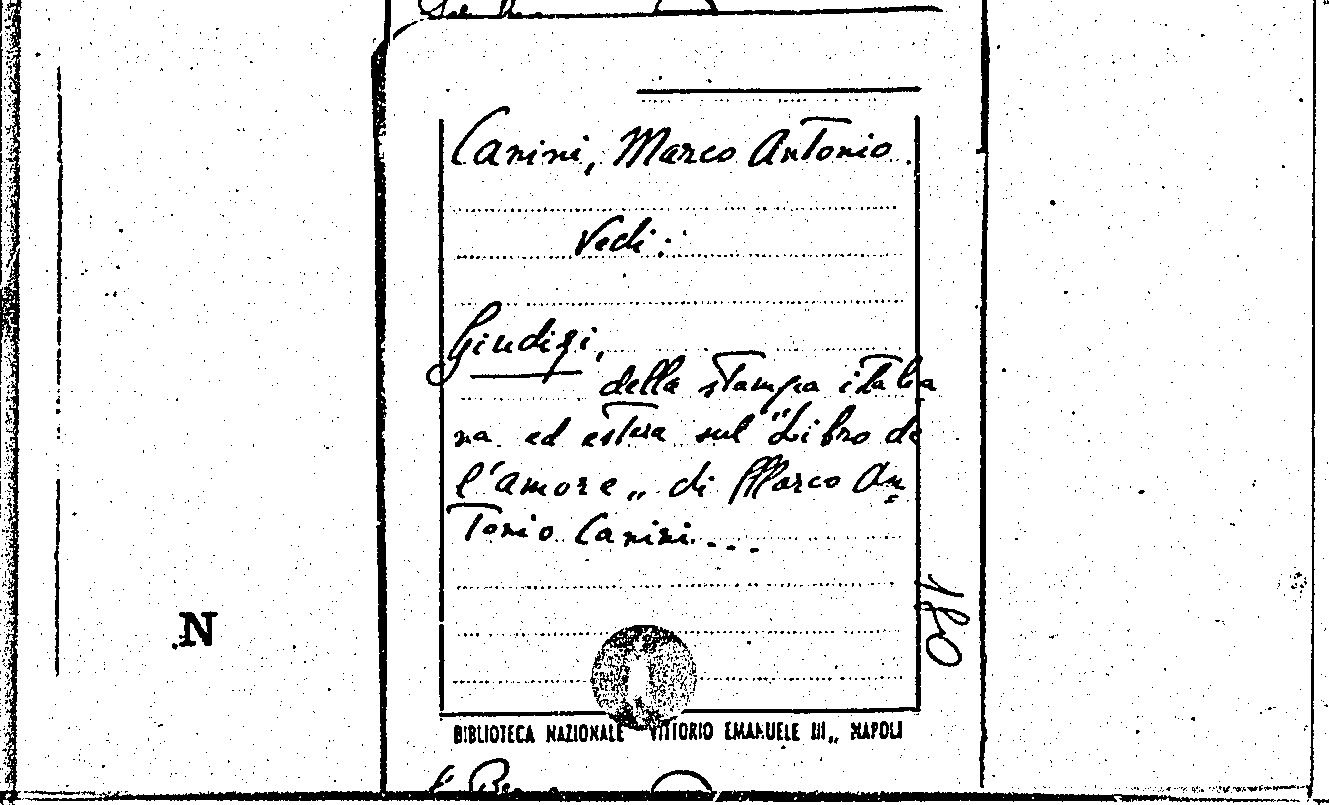 Canini, Marco Antonio.
Vedi:
Giudizi,
della stampa italia
na ed estera sul "Libro de
l'amore„ di Marco An
tonio Canini...
180
N
BIBLIOTECA NAZIONALE VITTORIO EMANUELE III„ NAPOLI